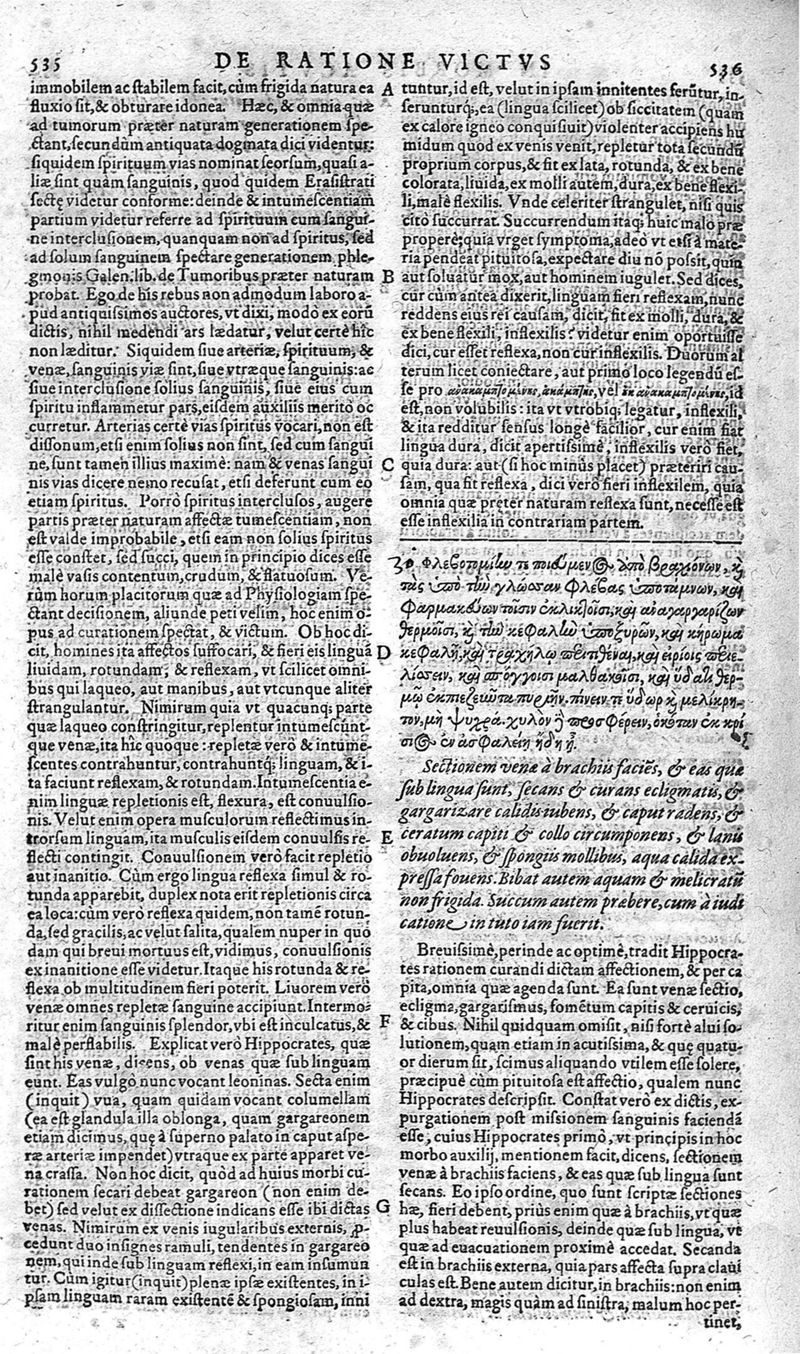 535
DE RATIONE VICTVS
536
immobilem ac stabilem facit, cùm frigida natura ea
fluxio sit, & obturare idonea. Hæc, & omnia quæ
ad tumorum præter naturam generationem spe-
ctant, secundùm antiquata dogmata dici videntur:
siquidem spirituum vias nominat seorsum, quasi a-
liæ sint quàm sanguinis, quod quidem Erasistrati
sectę videtur conforme: deinde & intumescentiam
partium videtur referre ad spirituum cum sangui-
ne interclusionem, quanquam non ad spiritus, sed
ad solum sanguinem spectare generationem phle-
gmonis Galen. lib. de Tumoribus præter naturam
probat. Ego de his rebus non admodum laboro a-
pud antiquissimos auctores, vt dixi, modò ex eorũ
dictis, nihil medendi ars lædatur, velut certè hîc
non læditur. Siquidem siue arteriæ, spirituum, &
venæ, sanguinis viæ sint, siue vtræque sanguinis: ac
siue interclusione solius sanguinis, siue eius cum
spiritu inflammetur pars, eisdem auxiliis meritò oc
curretur. Arterias certè vias spiritus vocari, non est
dissonum, etsi enim solius non sint, sed cum sangui
ne, sunt tamen illius maximè: nam & venas sangui
nis vias dicere nemo recusat, etsi deferunt cum eo
etiam spiritus. Porrò spiritus interclusos, augere
partis præter naturam affectæ tumescentiam, non
est valde improbabile, etsi eam non solius spiritus
esse constet, sed succi, quem in principio dices esse
malè vasis contentum, crudum, & flatuosum. Ve-
rùm horum placitorum quæ ad Physiologiam spe-
ctant decisionem, aliunde peti velim, hoc enim o-
pus ad curationem spectat, & victum. Ob hoc di-
cit, homines ita affectos suffocari, & fieri eis linguã
liuidam, rotundam, & reflexam, vt scilicet omni-
bus qui laqueo, aut manibus, aut vtcunque aliter
strangulantur. Nimirum quia vt quacunq; parte
quæ laqueo constringitur, replentur intumescũnt-
que venæ, ita hîc quoque: repletæ verò & intume-
scentes contrahuntur, contrahuntq; linguam, & i-
ta faciunt reflexam, & rotundam. Intumescentia e-
nim linguæ repletionis est, flexura, est conuulsio-
nis. Velut enim opera musculorum reflectimus in-
trorsum linguam, ita musculis eisdem conuulsis re-
flecti contingit. Conuulsionem verò facit repletio
aut inanitio. Cùm ergo lingua reflexa simul & ro-
tunda apparebit, duplex nota erit repletionis circa
ea loca: cùm verò reflexa quidem, non tamẽ rotun-
da, sed gracilis, ac velut salita, qualem nuper in quo
dam qui breui mortuus est, vidimus, conuulsionis
ex inanitione esse videtur. Itaque his rotunda & re-
flexa ob multitudinem fieri poterit. Liuorem verò
venæ omnes repletæ sanguine accipiunt. Intermo-
ritur enim sanguinis splendor, vbi est inculcatus, &
malè perflabilis. Explicat verò Hippocrates, quæ
sint his venæ, dicens, ob venas quæ sub linguam
eunt. Eas vulgo nunc vocant leoninas. Secta enim
(inquit) vua, quam quidam vocant columellam
(ea est glandula illa oblonga, quam gargareonem
etiam dicimus, quę à superno palato in caput aspe-
ræ arteriæ impendet) vtraque ex parte apparet ve-
na crassa. Non hoc dicit, quòd ad huius morbi cu-
rationem secari debeat gargareon (non enim de-
bet) sed velut ex dissectione indicans esse ibi dictas
venas. Nimirum ex venis iugularibus externis, ꝓ-
cedunt duo insignes ramuli, tendentes in gargareo
nem, qui inde sub linguam reflexi, in eam insumun
tur. Cùm igitur (inquit) plenæ ipsæ existentes, in i-
psam linguam raram existentẽ & spongiosam, inni
A
B
C
D
E
F
G
tuntur, id est, velut in ipsam innitentes ferũtur, in-
serunturq;, ea (lingua scilicet) ob siccitatem (quam
ex calore igneo conquisiuit) violenter accipiens hu
midum quod ex venis venit, repletur tota secundũ
proprium corpus, & fit ex lata, rotunda, & ex bene
colorata, liuida, ex molli autem, dura, ex bene flexi-
li, malè flexilis. Vnde celeriter strangulet, nisi quis
citò succurrat. Succurrendum itaq; huic malo præ
properè; quia vrget symptoma, adeò vt etsi à mate-
ria pendeat pituitosa, expectare diu nõ possit, quin
aut soluatur mox, aut hominem iugulet. Sed dices,
cur cùm antea dixerit, linguam fieri reflexam, nunc
reddens eius rei causam, dicit, fit ex molli, dura, &
ex bene flexili, inflexilis? videtur enim oportuisse
dici, cur esset reflexa, non cur inflexilis. Duorum al
terum licet coniectare, aut primo loco legendũ es-
se pro ἀνακαμπτομένης, ἀκαμπής, vel ἐκ ἀνακαμπτομένης, id
est, non volubilis: ita vt vtrobiq; legatur, inflexili,
& ita redditur sensus longè facilior, cur enim fiat
lingua dura, dicit apertissimè, inflexilis verò fiet,
quia dura: aut (si hoc minùs placet) præteriri cau-
sam, qua fit reflexa, dici verò fieri inflexilem, quia
omnia quæ præter naturam reflexa sunt, necesse est
esse inflexilia in contrariam partem.
30 Φλεβοτομίην τε ποιούμενος ἀπὸ βραχιόνων, καὶ
τὰς ὑπὸ τὴν γλῶσσαν φλέβας ὑποτάμνων, καὶ
φαρμακεύων τοῖσιν ἐκλικτοῖσι, καὶ ἀναγαργαρίζων
θερμοῖσι, καὶ τὴν κεφαλὴν ὑποξυρῶν, καὶ κήρωμα
κεφαλῇ, καὶ τραχήλῳ περιτιθέναι, καὶ εἰρίοις περιε-
λίσσειν, καὶ σπόγγοισι μαλθακοῖσι, καὶ ὕδατι θερ-
μῷ ἐκπιεζεῦντα πυριῆν. πίνειν τε ὕδωρ καὶ μελίκρη-
τον, μὴ ψυχρά. χυλὸν δὲ προσφέρειν, ὁκόταν ἐκ κρί
σιος ἐν ἀσφαλείῃ ἤδη ᾖ.
Sectionem venæ à brachiis faciẽs, & eas quæ
sub lingua sunt, secans & curans ecligmatis, &
gargarizare calidis iubens, & caput radens, &
ceratum capiti & collo circumponens, & lanis
obuoluens, & spongiis mollibus, aqua calida ex-
pressa fouens. Bibat autem aquam & melicratũ
non frigida. Succum autem præbere, cum à iudi
catione in tuto iam fuerit.
Breuissimè, perinde ac optimè, tradit Hippocra-
tes rationem curandi dictam affectionem, & per ca
pita, omnia quæ agenda sunt. Ea sunt venæ sectio,
ecligma, gargarismus, fomẽtum capitis & ceruicis,
& cibus. Nihil quidquam omisit, nisi fortè alui so-
lutionem, quam etiam in acutissima, & quę quatu-
or dierum sit, scimus aliquando vtilem esse solere,
præcipuè cùm pituitosa est affectio, qualem nunc
Hippocrates descripsit. Constat verò ex dictis, ex-
purgationem post missionem sanguinis faciendã
esse, cuius Hippocrates primò, vt principis in hoc
morbo auxilij, mentionem facit, dicens, sectionem
venæ à brachiis faciens, & eas quæ sub lingua sunt
secans. Eo ipso ordine, quo sunt scriptæ sectiones
hæ, fieri debent, priùs enim quæ à brachiis, vt quæ
plus habeat reuulsionis, deinde quæ sub lingua, vt
quæ ad euacuationem proximè accedat. Secanda
est in brachiis externa, quia pars affecta supra claui
culas est. Bene autem dicitur, in brachiis: non enim
ad dextra, magis quàm ad sinistra, malum hoc per-
tinet,